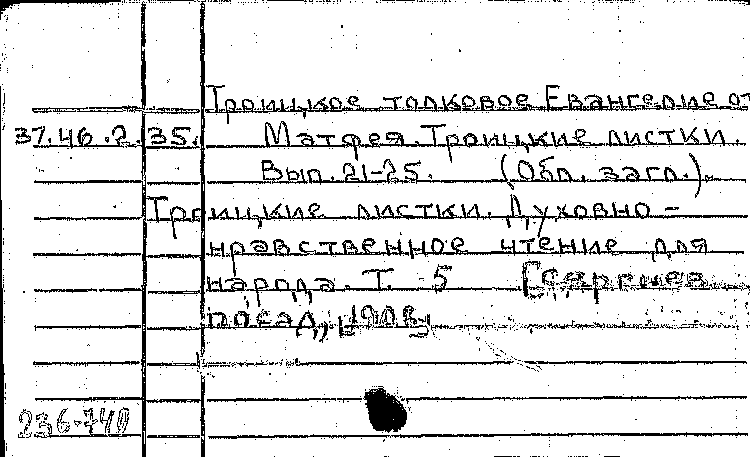 Троицкое толковое Евангелие от
37.46.2.35. Матфея. Троицкие листки.
Вып. 21-25. (Обл. загл.).
Троицкие листки. Духовно-
нравственное чтение для
народа. Т. 5 [Сергиев
посад,
236-740